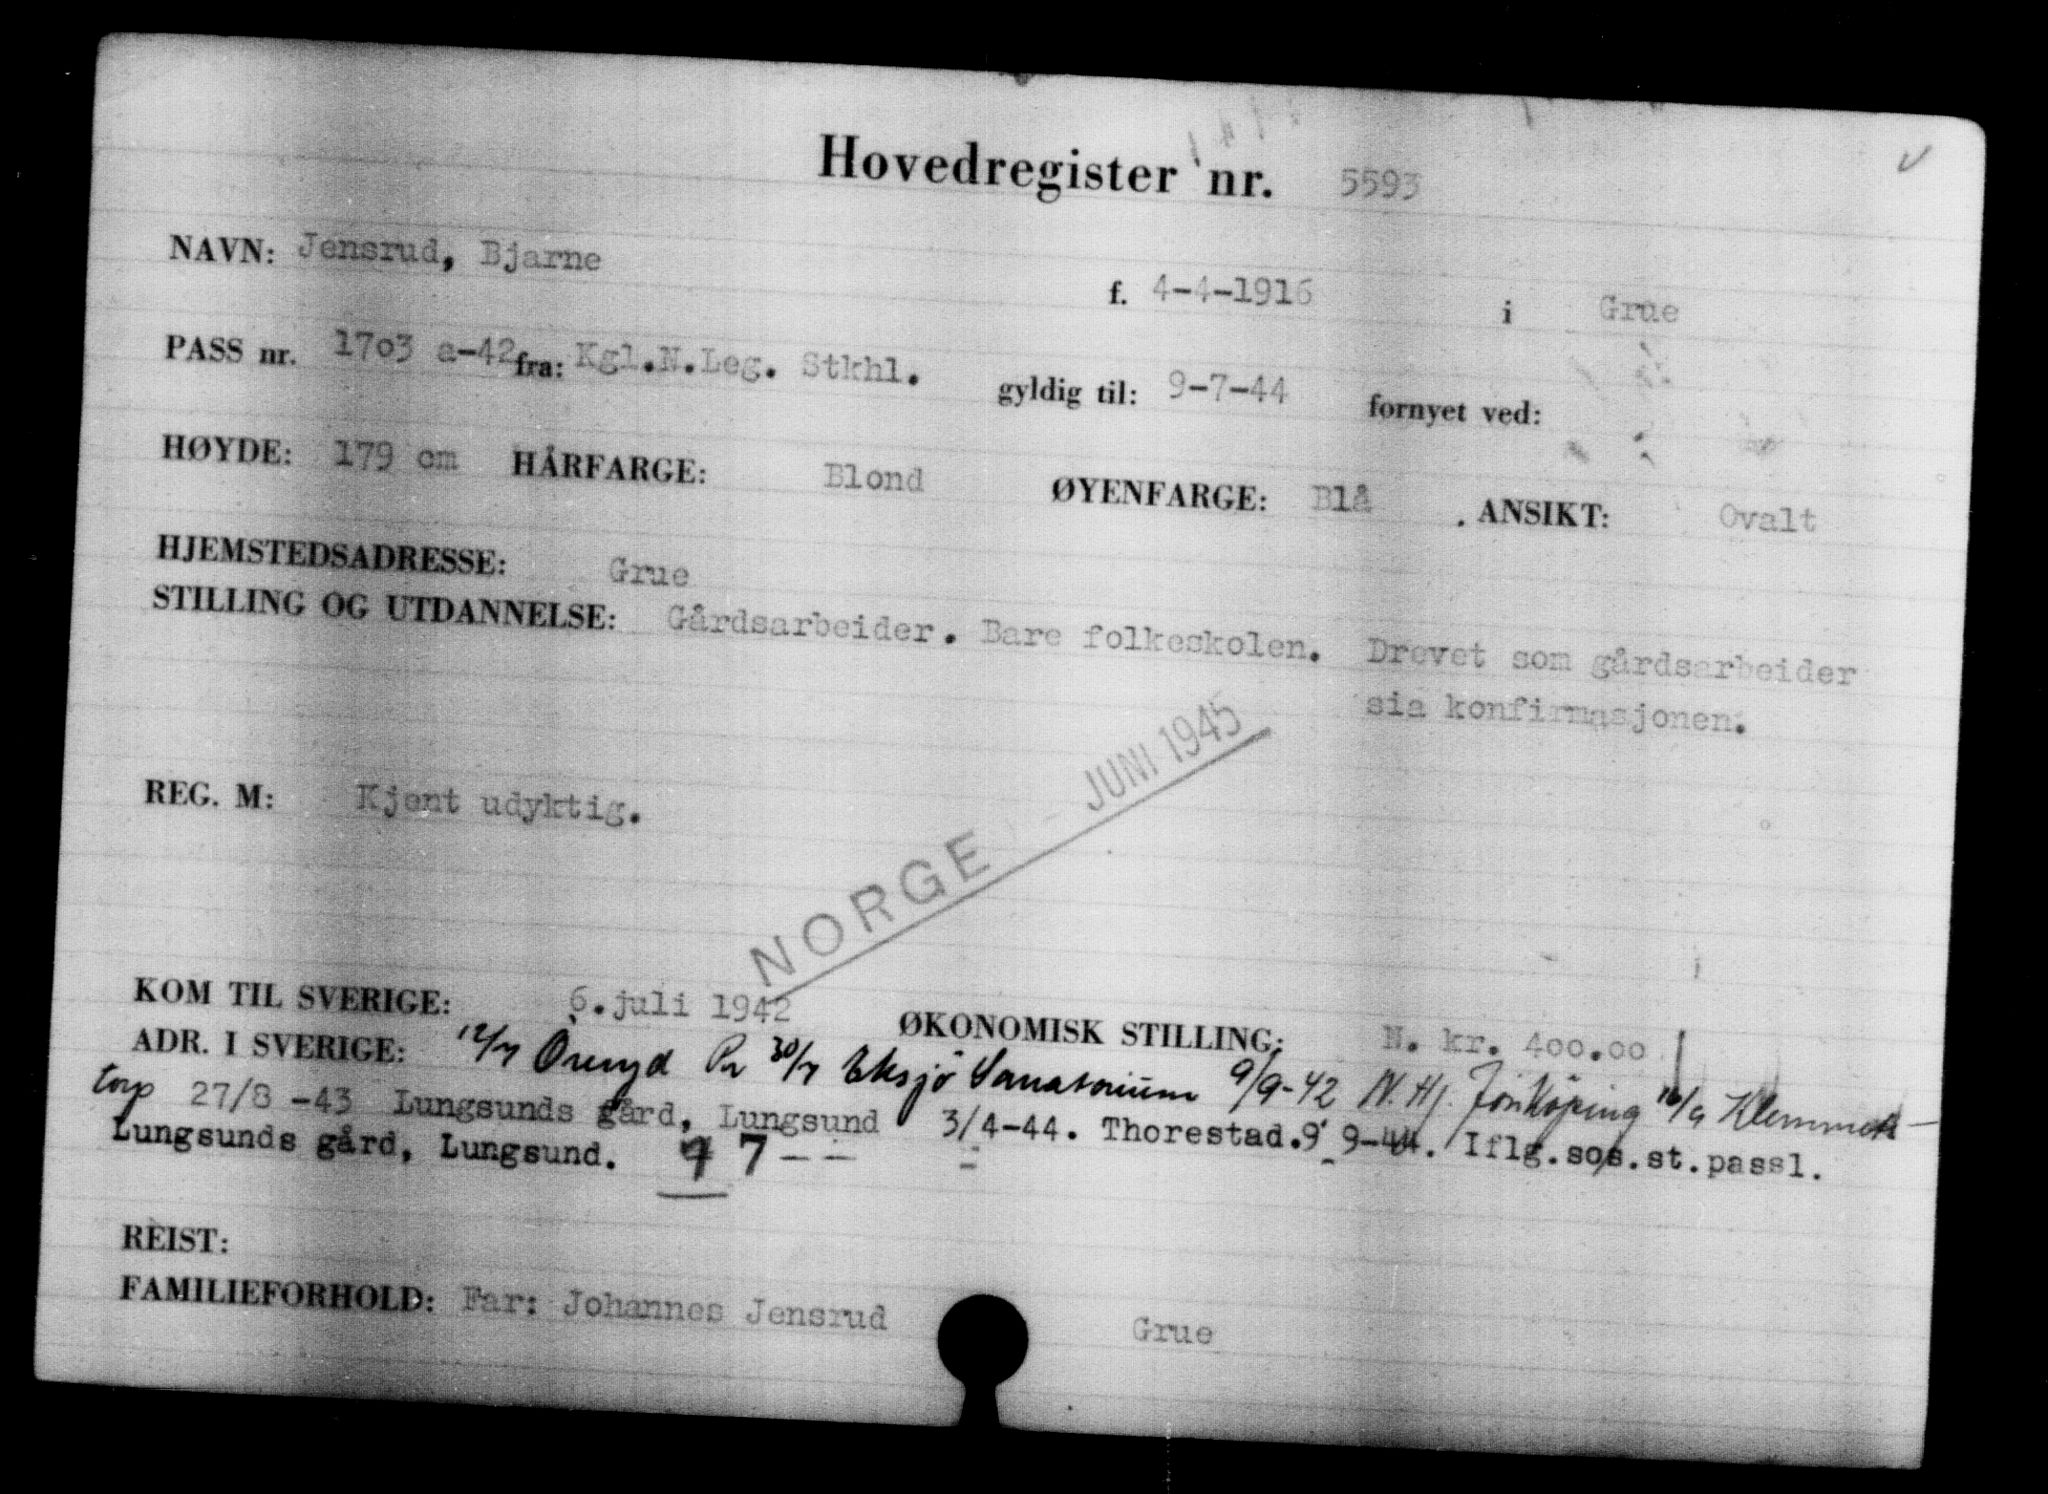 Hovedregister nr. 5593
NAVN: Jensrud, Bjarne f. 4-4-1916 i Grue
PASS nr. 1703 a-42 fra: Kgl.N.Leg. Stkhl. gyldig til: 9-7-44 fornyet ved:
HØYDE: 179 cm HÅRFARGE: Blond ØYENFARGE: Blå . ANSIKT: Ovalt
HJEMSTEDSADRESSE: Grue
STILLING OG UTDANNELSE: Gårdsarbeider. Bare folkeskolen. Drevet som gårdsarbeider
sia konfirmasjonen.
REG. M: Kjent udyktig.
NORGE - JUNI 1945
KOM TIL SVERIGE: 6.juli 1942 ØKONOMISK STILLING: N. kr. 400.00
ADR. I SVERIGE: 12/7 Öreryd Pr 30/7 Eksjö Sanatorium 9/9-42 N. Hj. Jönköping 16/9 Klemmets-
torp 27/8 -43 Lungsunds gård, Lungsund 3/4-44. Thorestad. 9 9-44. Iflg.sos.st.passl.
Lungsunds gård, Lungsund. 7 7 - - -
REIST:
FAMILIEFORHOLD: Far: Johannes Jensrud Grue